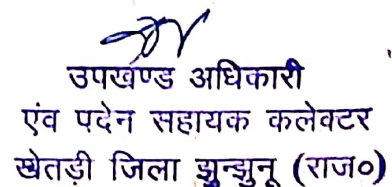 उपखण्ड अधिकारी
एंव पदेन सहायक कलेक्टर
खेतड़ी जिला झुन्झुनू (राज०)